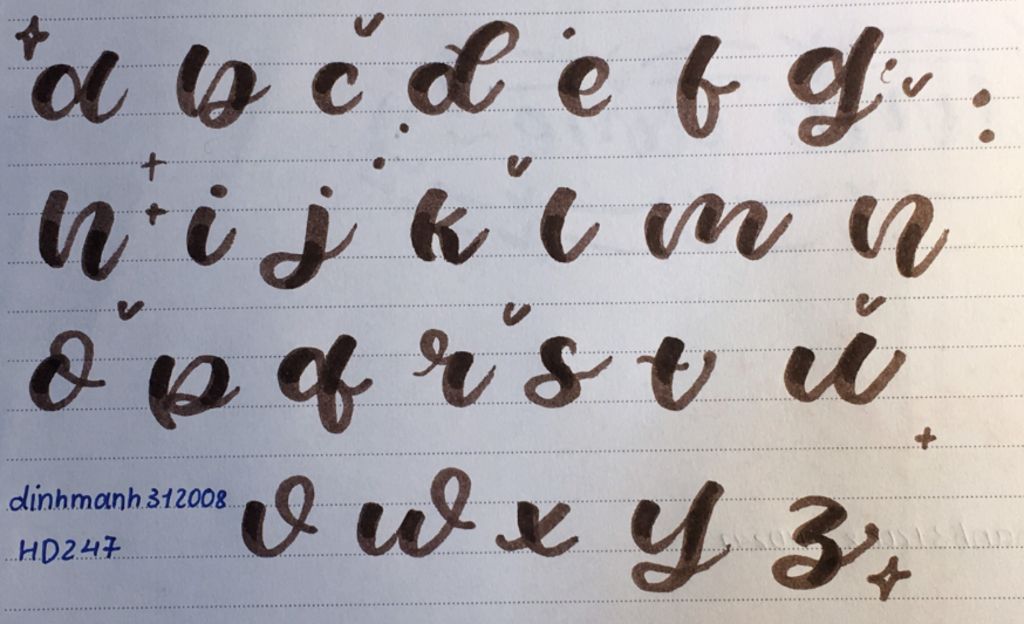 a b c d e f g
h i j k l m n
o p q r s t u
dinhmanh312008
v w x y z
HD247